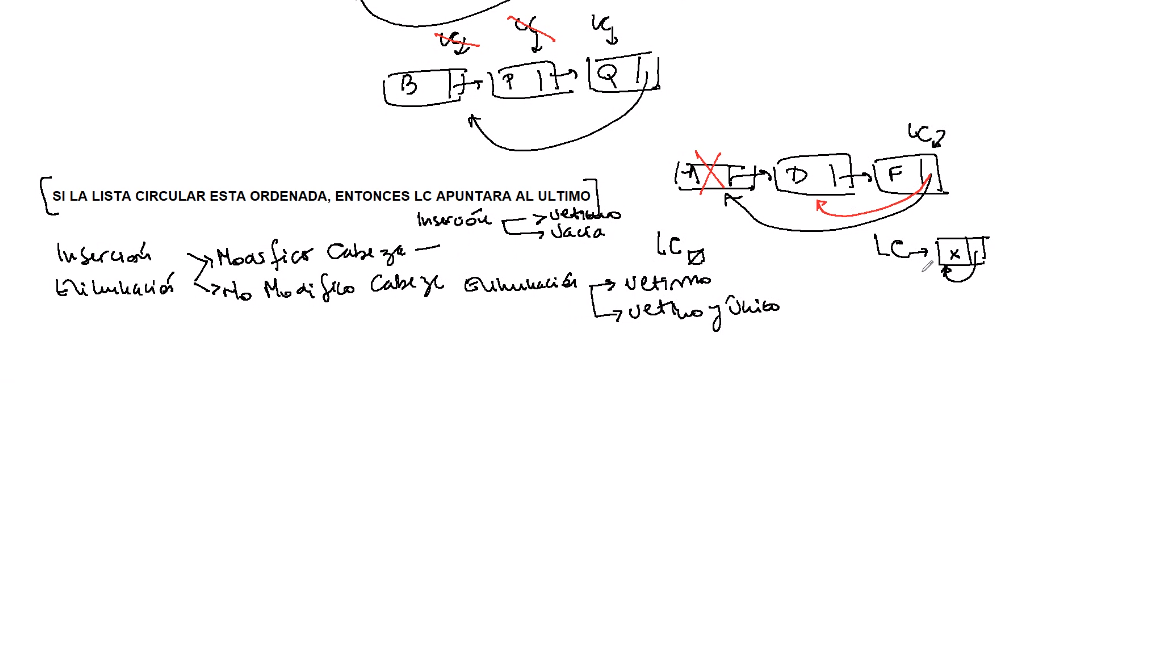 LC LC LC
B P Q
LC
A D F
SI LA LISTA CIRCULAR ESTA ORDENADA, ENTONCES LC APUNTARA AL ULTIMO
Inserción Ultimo
Vacia
Inserción Modifico Cabeza
LC
LC X
Eliminación No Modifico Cabeza Eliminación Ultimo
Ultimo y Único